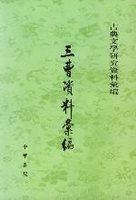 古典文學研究資料彙編
三曹資料彙編
中華書局